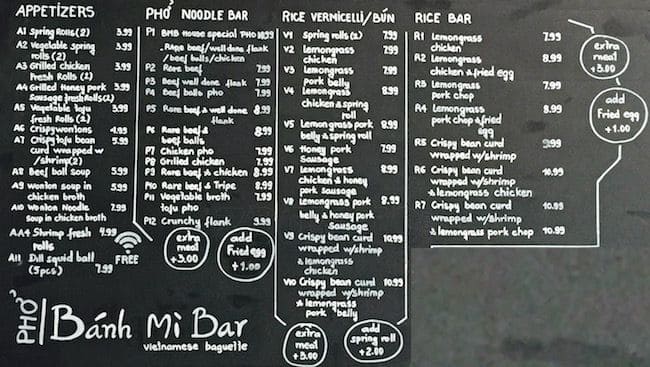 APPETIZERS
A1 Spring Rolls(2) 3.99
A2 Vegetable spring
rolls (2) 3.99
A3 Grilled chicken 3.99
Fresh Rolls (2)
A4 Grilled Honey pork
Sausage fresh Rolls(2) 3.99
A5 Vegetable Tofu
fresh Rolls (2) 3.99
A6 Crispy wontons 4.99
A7 Crispy tofu bean
curd wrapped w
/shrimp(2) 3.99
A8 Beef ball soup 5.99
A9 wonton soup in 5.99
chicken broth
A10 Wonton Noodle 7.99
soup in chicken broth
AA+ Shrimp fresh 4.99
rolls
A11 Dill squid ball
(5pcs) 7.99
FREE
PHỞ NOODLE BAR
P1 BMB House special PHO 10.99
Rare beef/well done flank
/beef balls/chicken
P2 Rare beef 7.99
P3 Beef well done flank 7.99
P4 Beef balls pho 7.99
P5 Rare beef & well done 8.99
flank
P6 Rare beef & 8.99
beef balls
P7 Chicken pho 7.99
P8 Grilled chicken 7.99
P9 Rare beef & chicken 8.99
P10 Rare beef & Tripe 8.99
P11 Vegetable broth 7.99
Tofu pho
P12 Crunchy flank 3.99
extra
meat
+3.00
add
Fried egg
+1.00
RICE VERMICELLI/BÚN
V1 Spring rolls(2) 7.99
V2 Lemongrass 7.99
chicken
V3 Lemongrass 7.99
pork belly
V4 Lemongrass 8.99
chicken & spring
roll
V5 Lemongrass pork 8.99
belly & spring roll
V6 Honey pork 7.99
Sausage
V7 Lemongrass 8.99
chicken & honey
pork sausage
V8 Lemongrass pork 8.99
belly & honey pork
Sausage
V9 Crispy bean curd 10.99
wrapped w/shrimp
& lemongrass
chicken
V10 Crispy bean curd 10.99
wrapped w/shrimp
& lemongrass
pork belly
extra
meat
+3.00
add
spring roll
+2.00
RICE BAR
R1 Lemongrass 7.99
chicken
R2 Lemongrass 8.99
chicken & fried egg
R3 Lemongrass 7.99
pork chop
R4 Lemongrass 8.99
pork chop & fried
egg
R5 Crispy bean curd 9.99
wrapped w/shrimp
R6 Crispy bean curd 10.99
wrapped w/shrimp
& lemongrass chicken
R7 Crispy bean curd 10.99
wrapped w/shrimp
& lemongrass pork chop 10.99
extra
meat
+3.00
add
Fried egg
+1.00
PHỞ
Bánh Mì Bar
vietnamese baguette